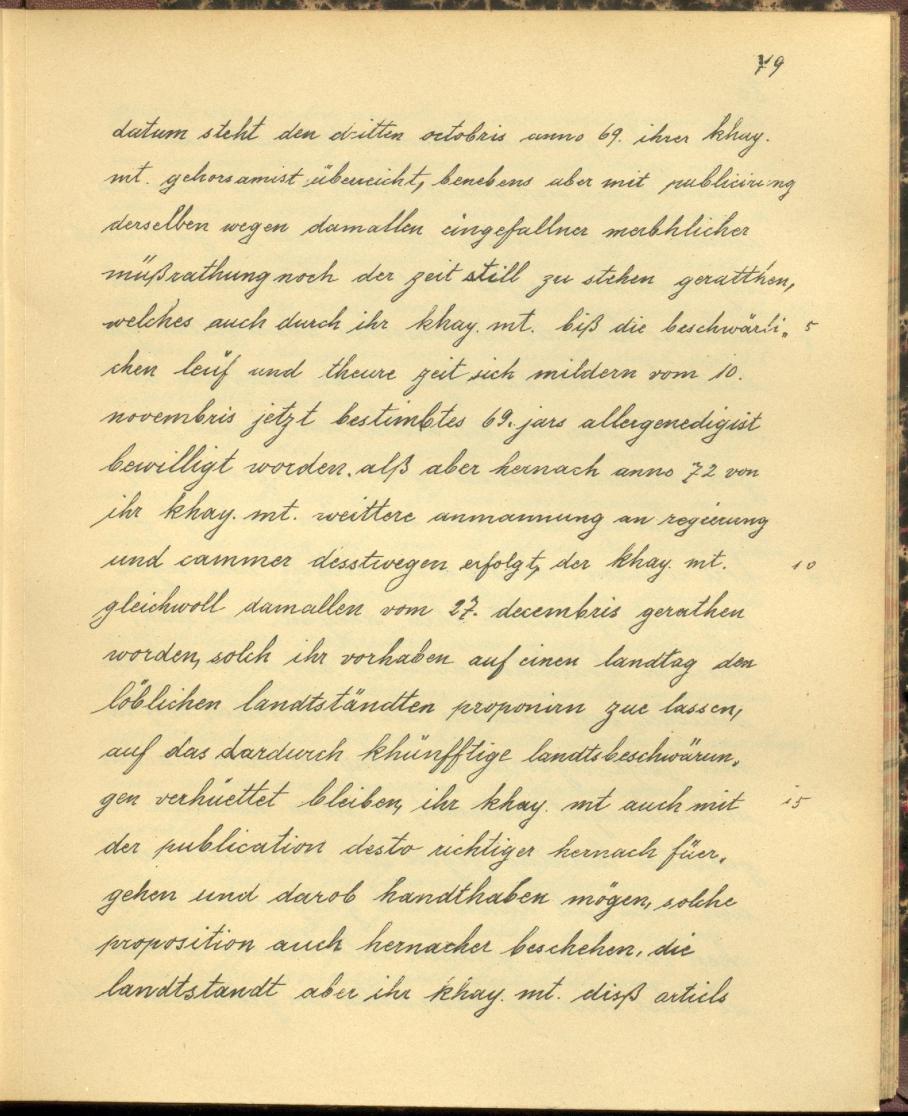 79
datum steht den dritten octobris anno 69. ihrer khay.
mt. gehorsamist überreicht, benebens aber mit publicirung
derselben wegen damallen eingefallner merkhlicher
müßrathung noch der zeit still zu stehen geratthen,
welches auch durch ihr khay. mt. biß die beschwärli„ 5
chen leüf und theure zeit sich mildern vom 10.
novembris jetzt bestimbtes 69. jars allergenedigist
bewilligt worden. alß aber hernach anno 72 von
ihr khay. mt. weittere anmannung an regierung
und cammer desstwegen erfolgt, der khay. mt. 10
gleichwoll damallen vom 27. decembris gerathen
worden, solch ihr vorhaben auf einen landtag den
löblichen landtständten proponirn zue lassen,
auf das dardurch khünfftige landtsbeschwärun„
gen verhüettet bleiben, ihr khay. mt auch mit 15
der publication desto richtiger hernach füer„
gehen und darob handthaben mögen, solche
proposition auch hernacher beschehen, die
landtstandt aber ihr khay. mt. disß articls